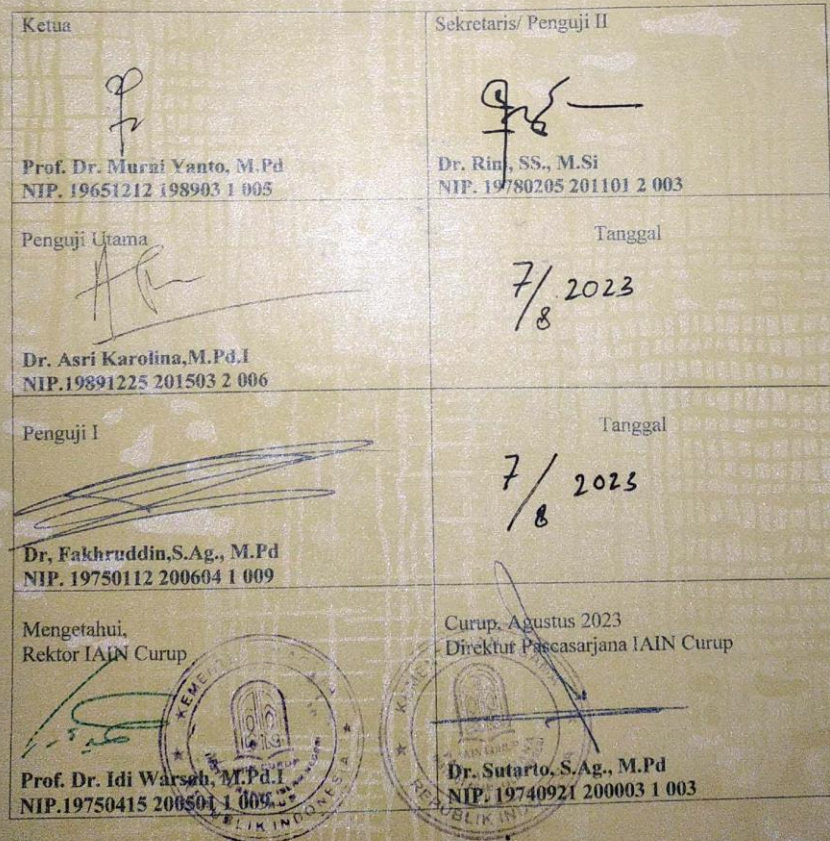 Ketua
Prof. Dr. Murni Yanto, M.Pd
NIP. 19651212 198903 1 005
Sekretaris/ Penguji II
Dr. Rini, SS., M.Si
NIP. 19780205 201101 2 003
Penguji Utama
Dr. Asri Karolina,M.Pd.I
NIP.19891225 201503 2 006
Tanggal
7/8 2023
Penguji I
Dr, Fakhruddin,S.Ag., M.Pd
NIP. 19750112 200604 1 009
Tanggal
7/8 2023
Mengetahui,
Rektor IAIN Curup
Prof. Dr. Idi Warsah, M.Pd.I
NIP.19750415 200501 1 009
Curup, Agustus 2023
Direktur Pascasarjana IAIN Curup
Dr. Sutarto, S.Ag., M.Pd
NIP. 19740921 200003 1 003
REPUBLIK INDONESIA